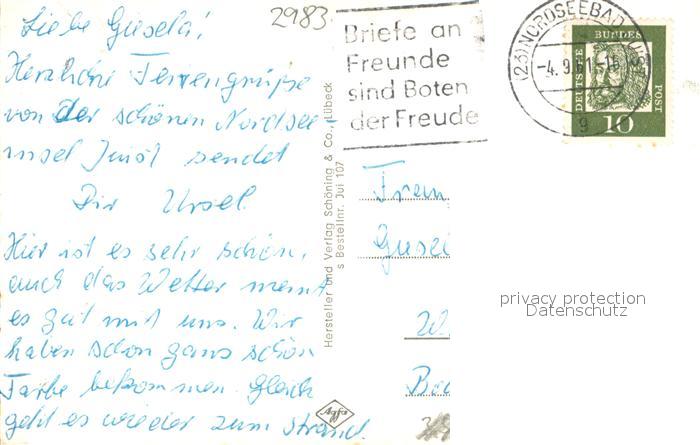 Liebe Gisela!
2983
Herzliche Feriengrüße
von der schönen Nordsee-
insel Juist sendet
Dir Ursel.
Hier ist es sehr schön,
auch das Wetter meint
es gut mit uns. Wir
haben schon ganz schön
Farbe bekommen. Gleich
geht es wieder zum Strand.
Hersteller und Verlag Schöning & Co., Lübeck
s Bestellnr. Jui 107
Agfa
Briefe an
Freunde
sind Boten
der Freude
(23) NORDSEEBAD
-4.9.61
9
DEUTSCHE
BUNDES
POST
10
privacy protection
Datenschutz